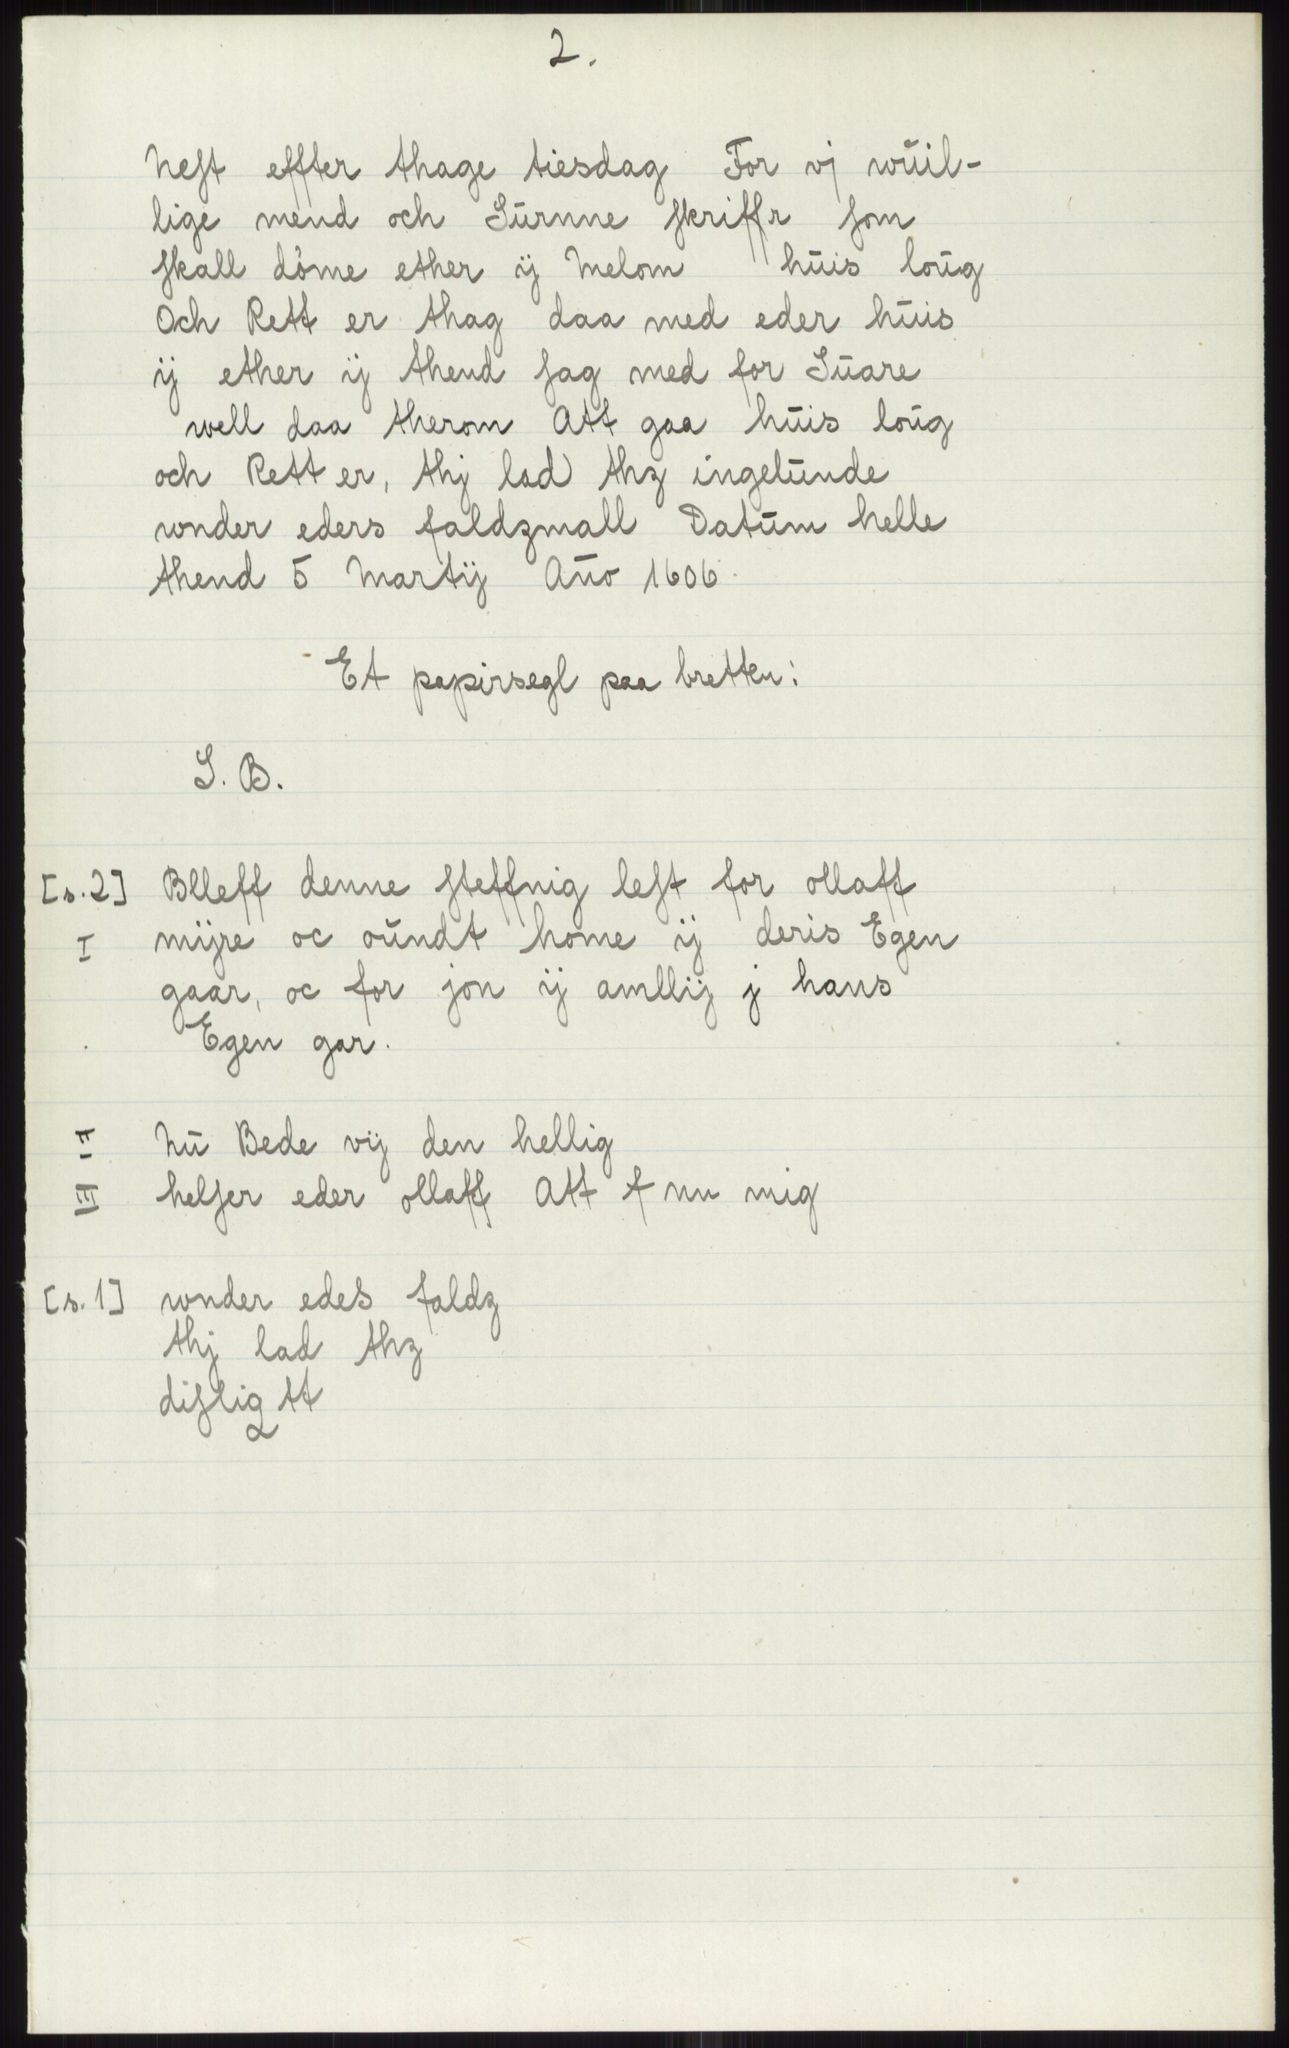 2.
Neſt effter thage tiesdag For vj wŭil-
lige mend och Sŭrnne ſkriffr ſom
ſkall dôme ether ÿ Melom hŭis loŭg
Och Rett er thag daa med eder hŭis
ÿ ether ÿ thend ſag med for Sŭare
well daa therom Att gaa hŭis loŭg
och Rett er, thj lad thz ingelŭnde
wnder eders faldzmall Datŭm helle
thend 5 Martÿ Año 1606
Et papirsegl paa bretten:
S. B.
[s. 2] Blleff denne ſteffnig leſt for ollaff
I mÿre oc oŭndt home ÿ deris Egen
gaar, oc for jon ÿ amllÿ j hans
Egen gar.
II Nŭ Bede vÿ den hellig
III helſer eder ollaff Att f nu mig
[s. 1] wnder edeS faldz
thj lad thz
diſligtt